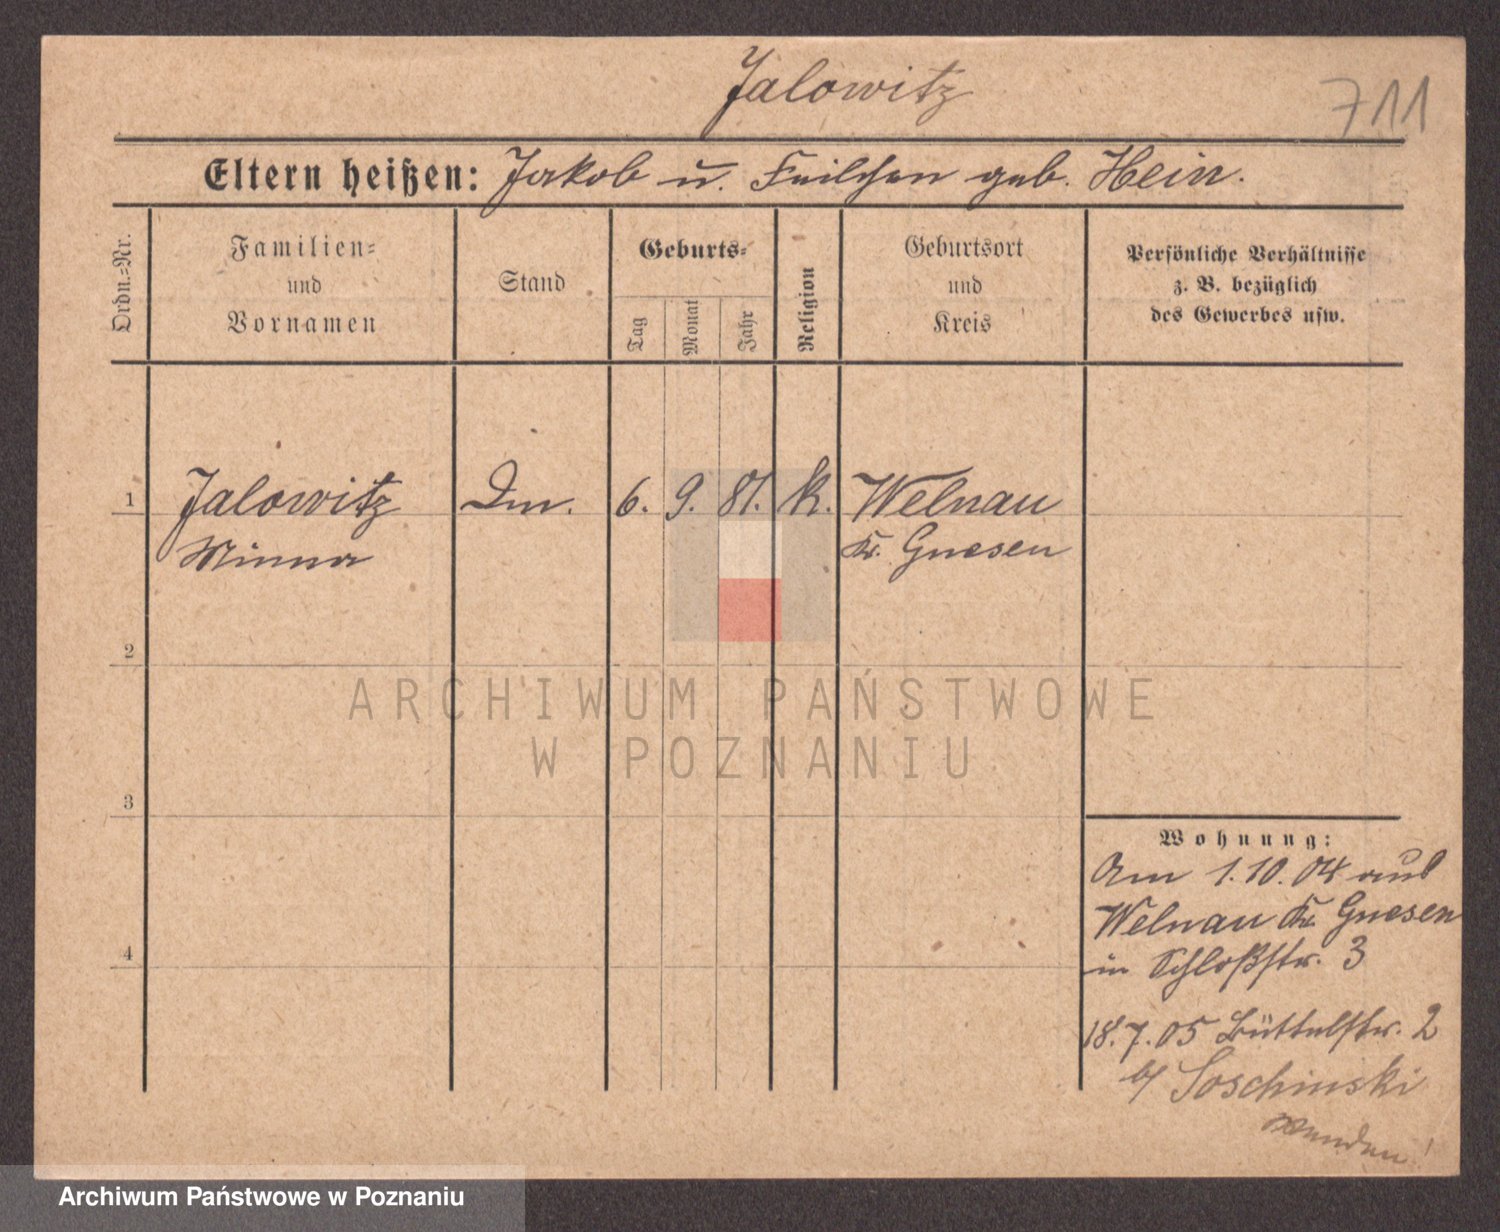 Jalowitz
711
Eltern heißen: Jakob u. Feilchen geb. Hein.
Ordn.=Nr.
Familien=
und
Vornamen
Stand
Geburts=
Tag
Monat
Jahr
Religion
Geburtsort
und
Kreis
Persönliche Verhältnisse
z. B. bezüglich
des Gewerbes usw.
1 Jalowitz 6. 9. 81. k. Welnau
Minna Kr. Gnesen
2
ARCHIWUM PAŃSTWOWE
W POZNANIU
3
Wohnung:
Am 1.10.04 aus
Welnau Kr. Gnesen
in Schloßstr. 3
4
18.7.05 Büttelstr. 2
b/ Soschinski
Wenden!
Archiwum Państwowe w Poznaniu